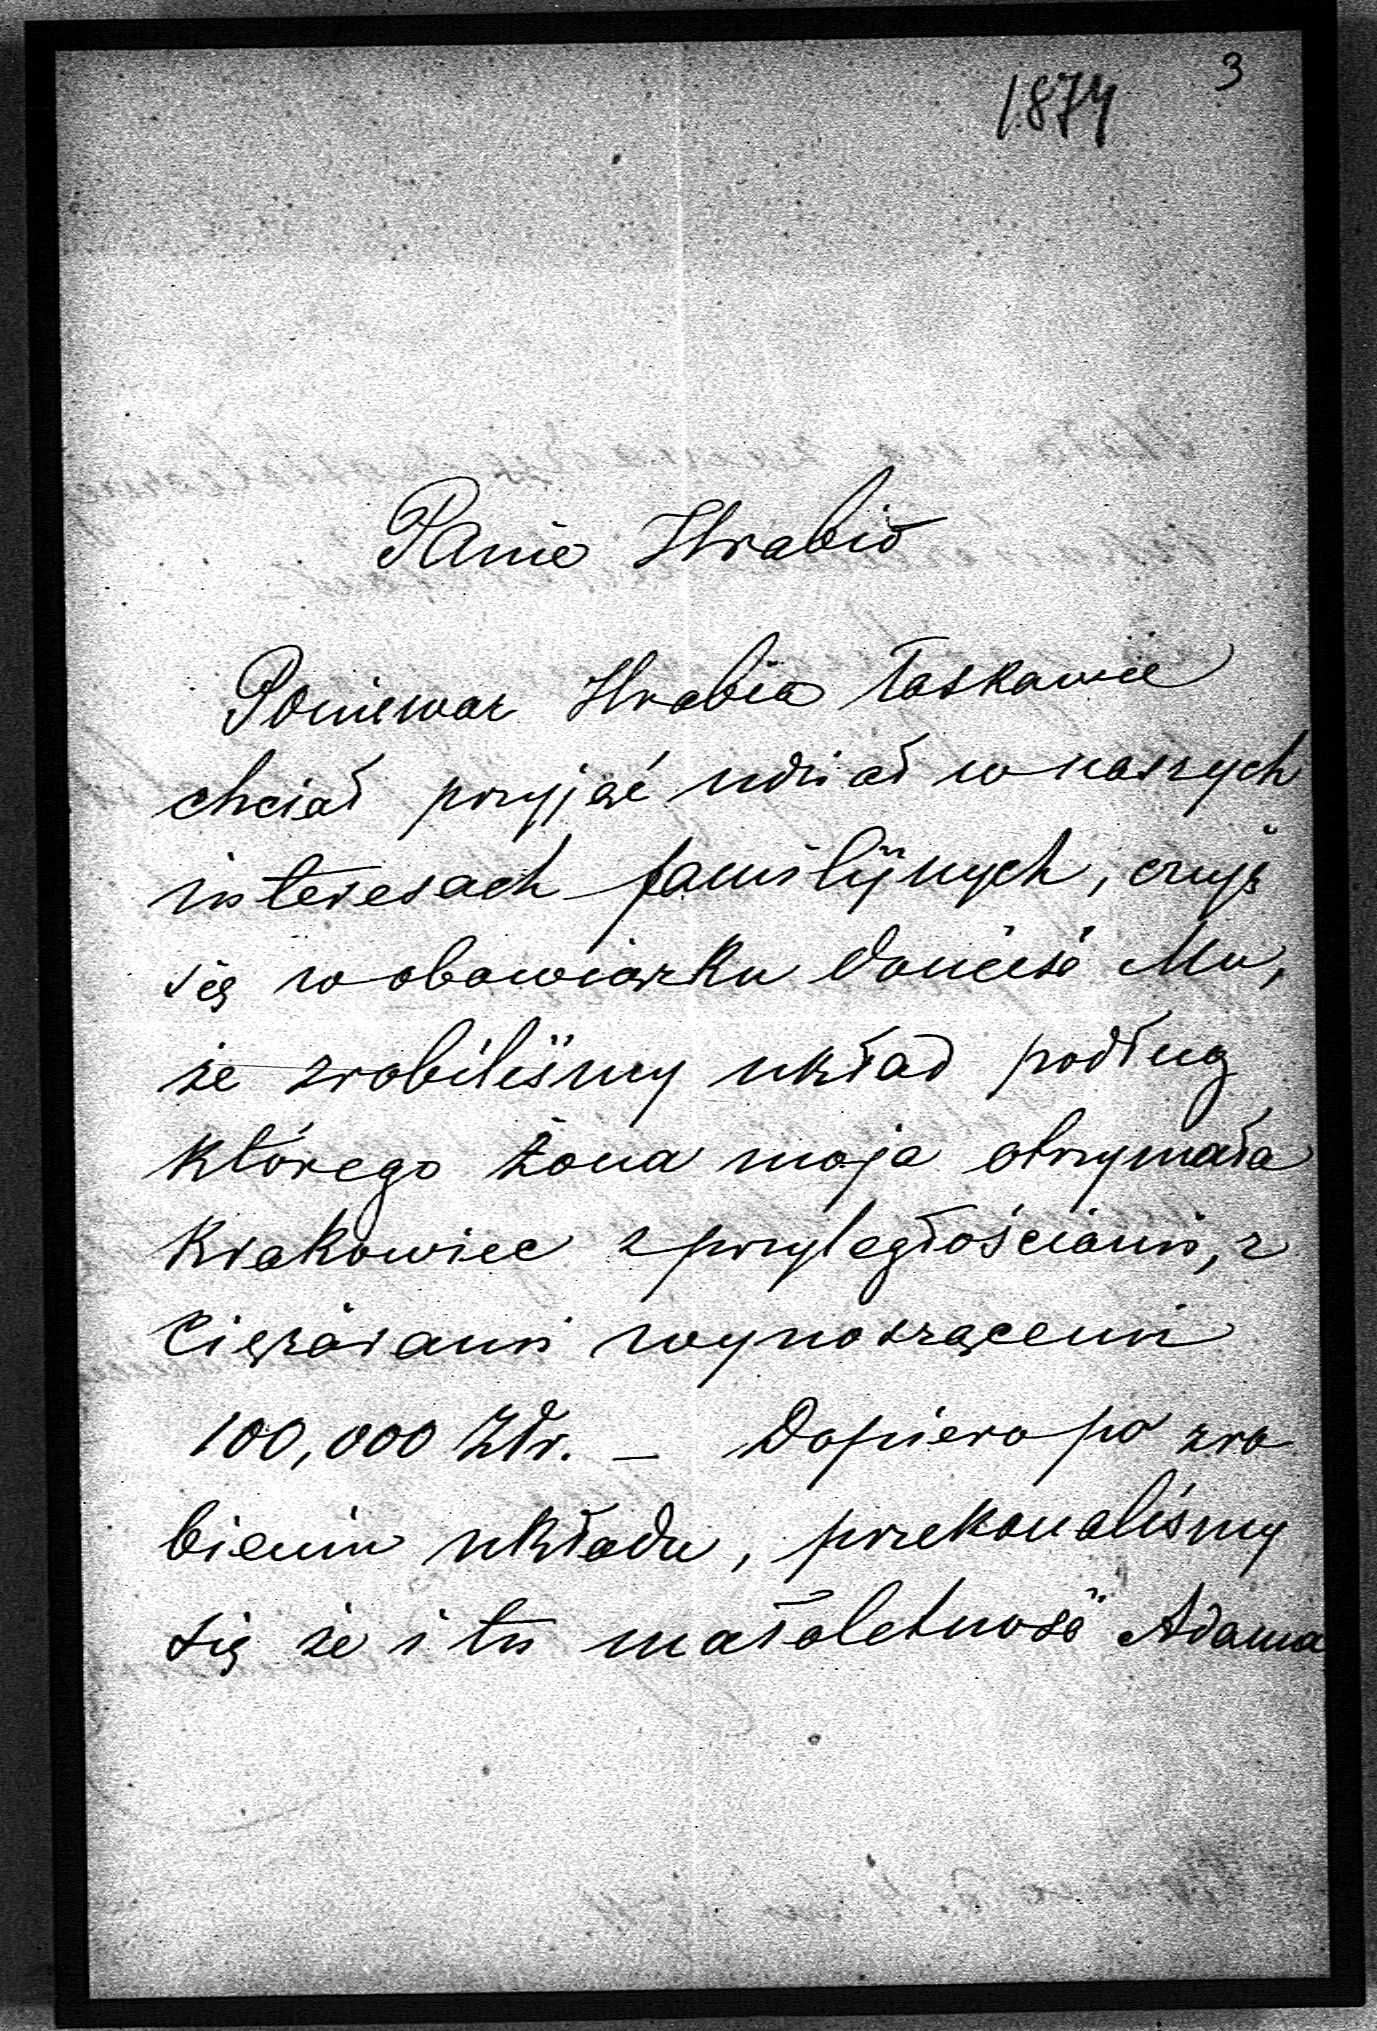 3
1874
Panie Hrabio
Ponieważ Hrabia łaskawie
chciał przyjąć udział w naszych
interesach familijnych, czuję
się w obowiązku donieść Mu,
że zrobiliśmy układ podług
którego żona moja otrzymała
Krakowiec z przyległościami, z
Ciężarami wynoszącemi
100,000 Złr. — Dopiero po zro
bieniu układu, przekonaliśmy
się że i tu małoletność Adama